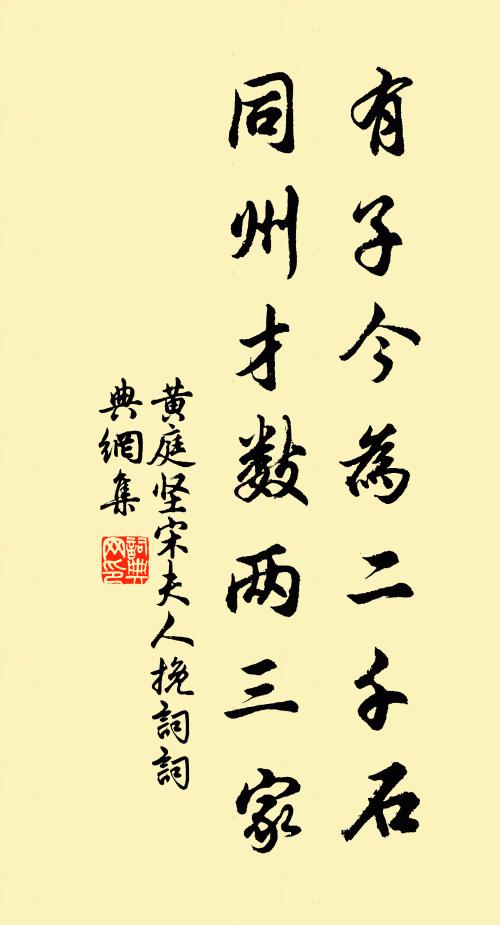 有子今為二千石
同州才数两三家
黄庭坚宋夫人挽詞詞
典網集
詞典
网印